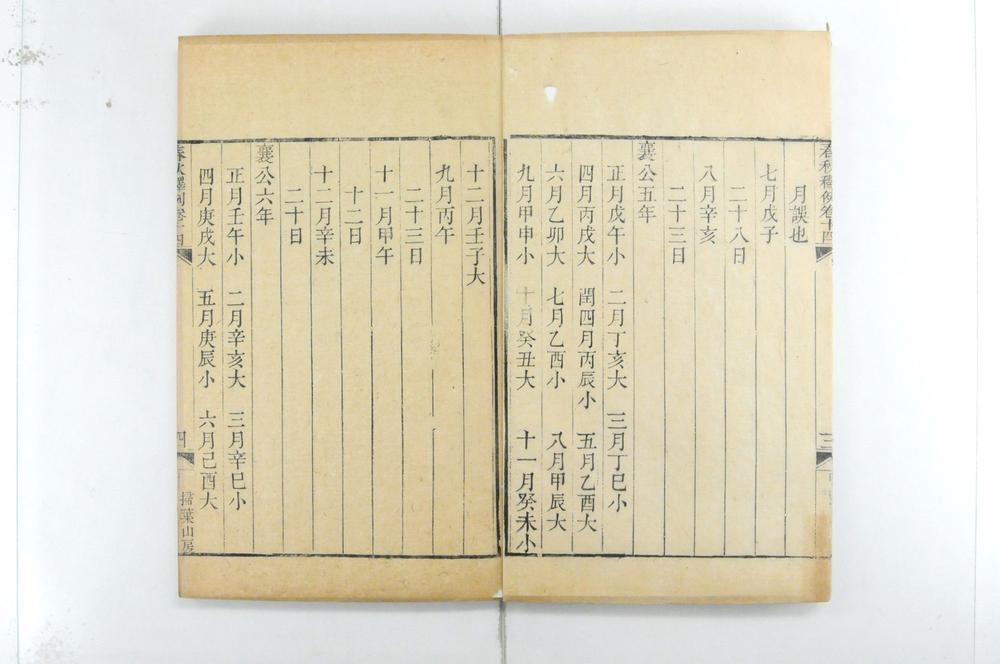 春秋釋例卷十四
三
月誤也
七月戊子
二十八日
八月辛亥
二十三日
襄公五年
正月戊午小 二月丁亥大 三月丁巳小
四月丙戌大 閏四月丙辰小 五月乙酉大
六月乙卯大 七月乙酉小 八月甲辰大
九月甲申小 十月癸丑大 十一月癸未小
十二月壬子大
九月丙午
二十三日
十一月甲午
十二日
十二月辛未
二十日
襄公六年
正月壬午小 二月辛亥大 三月辛巳小
四月庚戌大 五月庚辰小 六月己酉大
春秋釋例卷十四
四
掃葉山房